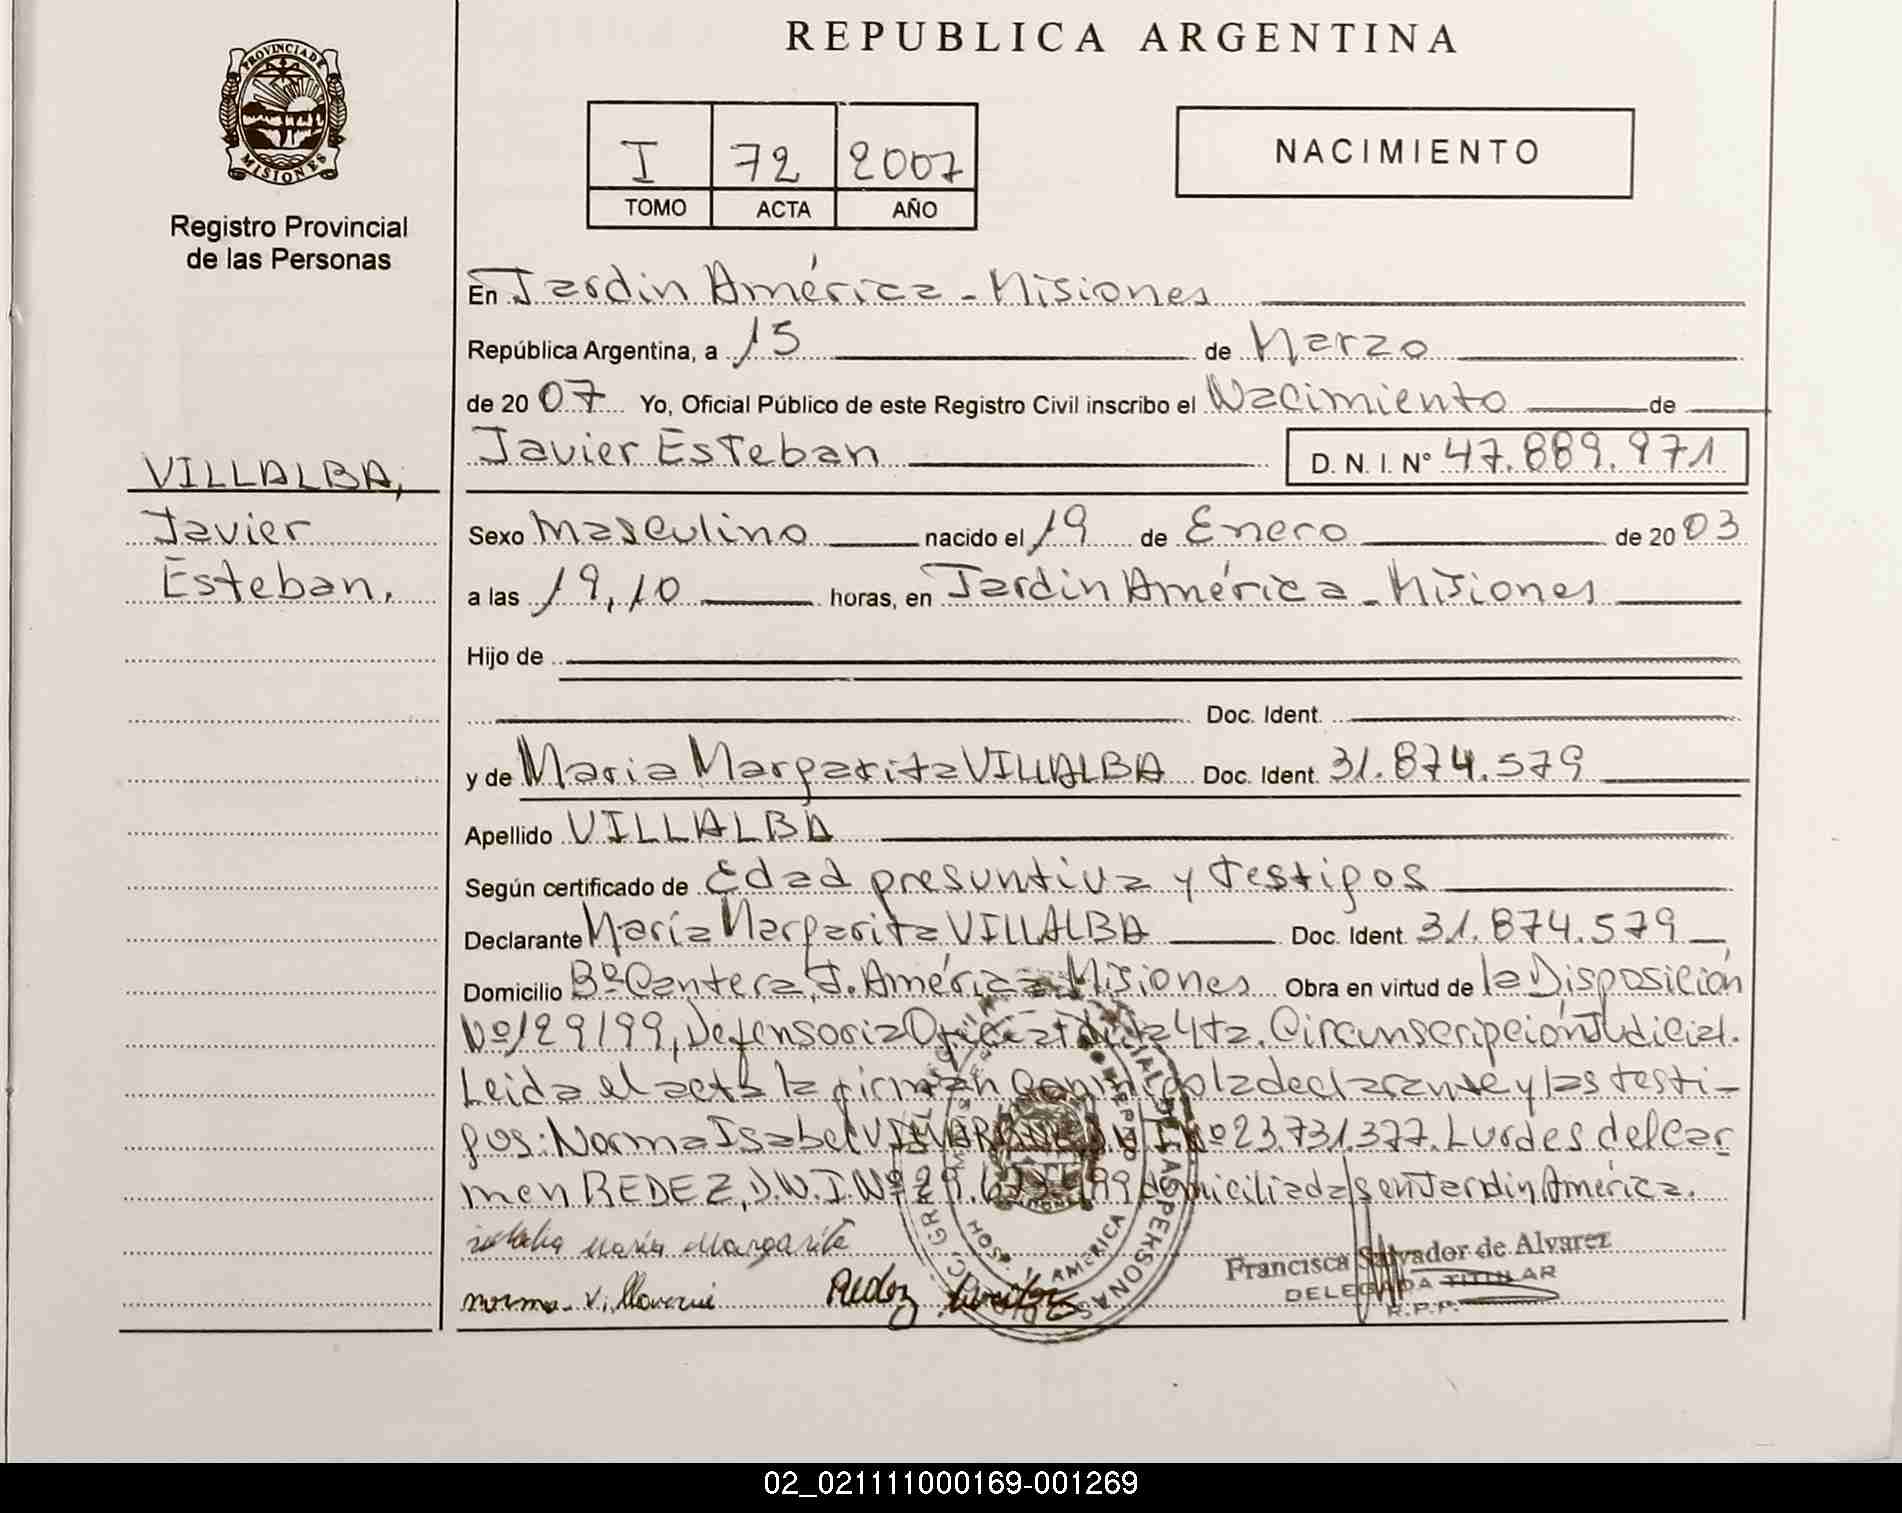 PROVINCIA DE
MISIONES
Registro Provincial
de las Personas
VILLALBA,
Javier
Esteban.
REPUBLICA ARGENTINA
I 72 2007
TOMO ACTA AÑO
NACIMIENTO
En Jardin América - Misiones
República Argentina, a 15 de Marzo
de 2007 Yo, Oficial Público de este Registro Civil inscribo el Nacimiento de
Javier Esteban D. N. I. Nº 47.889.971
Sexo masculino nacido el 19 de Enero de 2003
a las 19,10 horas, en Jardin América - Misiones
Hijo de
Doc. Ident.
y de Maria Margarita VILLALBA Doc. Ident. 31.874.579
Apellido VILLALBA
Según certificado de Edad presuntiva y testigos
Declarante María Margarita VILLALBA Doc. Ident. 31.874.579
Domicilio Bº Cantera, J. América - Misiones Obra en virtud de la Disposición
Nº 129/99, Defensoria Oficial de la 4ta. Circunscripción Judicial.
Leida el acta la firman conmigo la declarante y las testi-
gos: Norma Isabel D.N.I. Nº 23.731.377. Lurdes del Car
men REDEZ, D.N.I. Nº 29. domiciliadas en Jardin América.
María Margarita
norma Redez
Francisca Salvador de Alvarez
DELEGADA TITULAR
R.P.P.
DE LAS PERSONAS
AMERICA
02_021111000169-001269